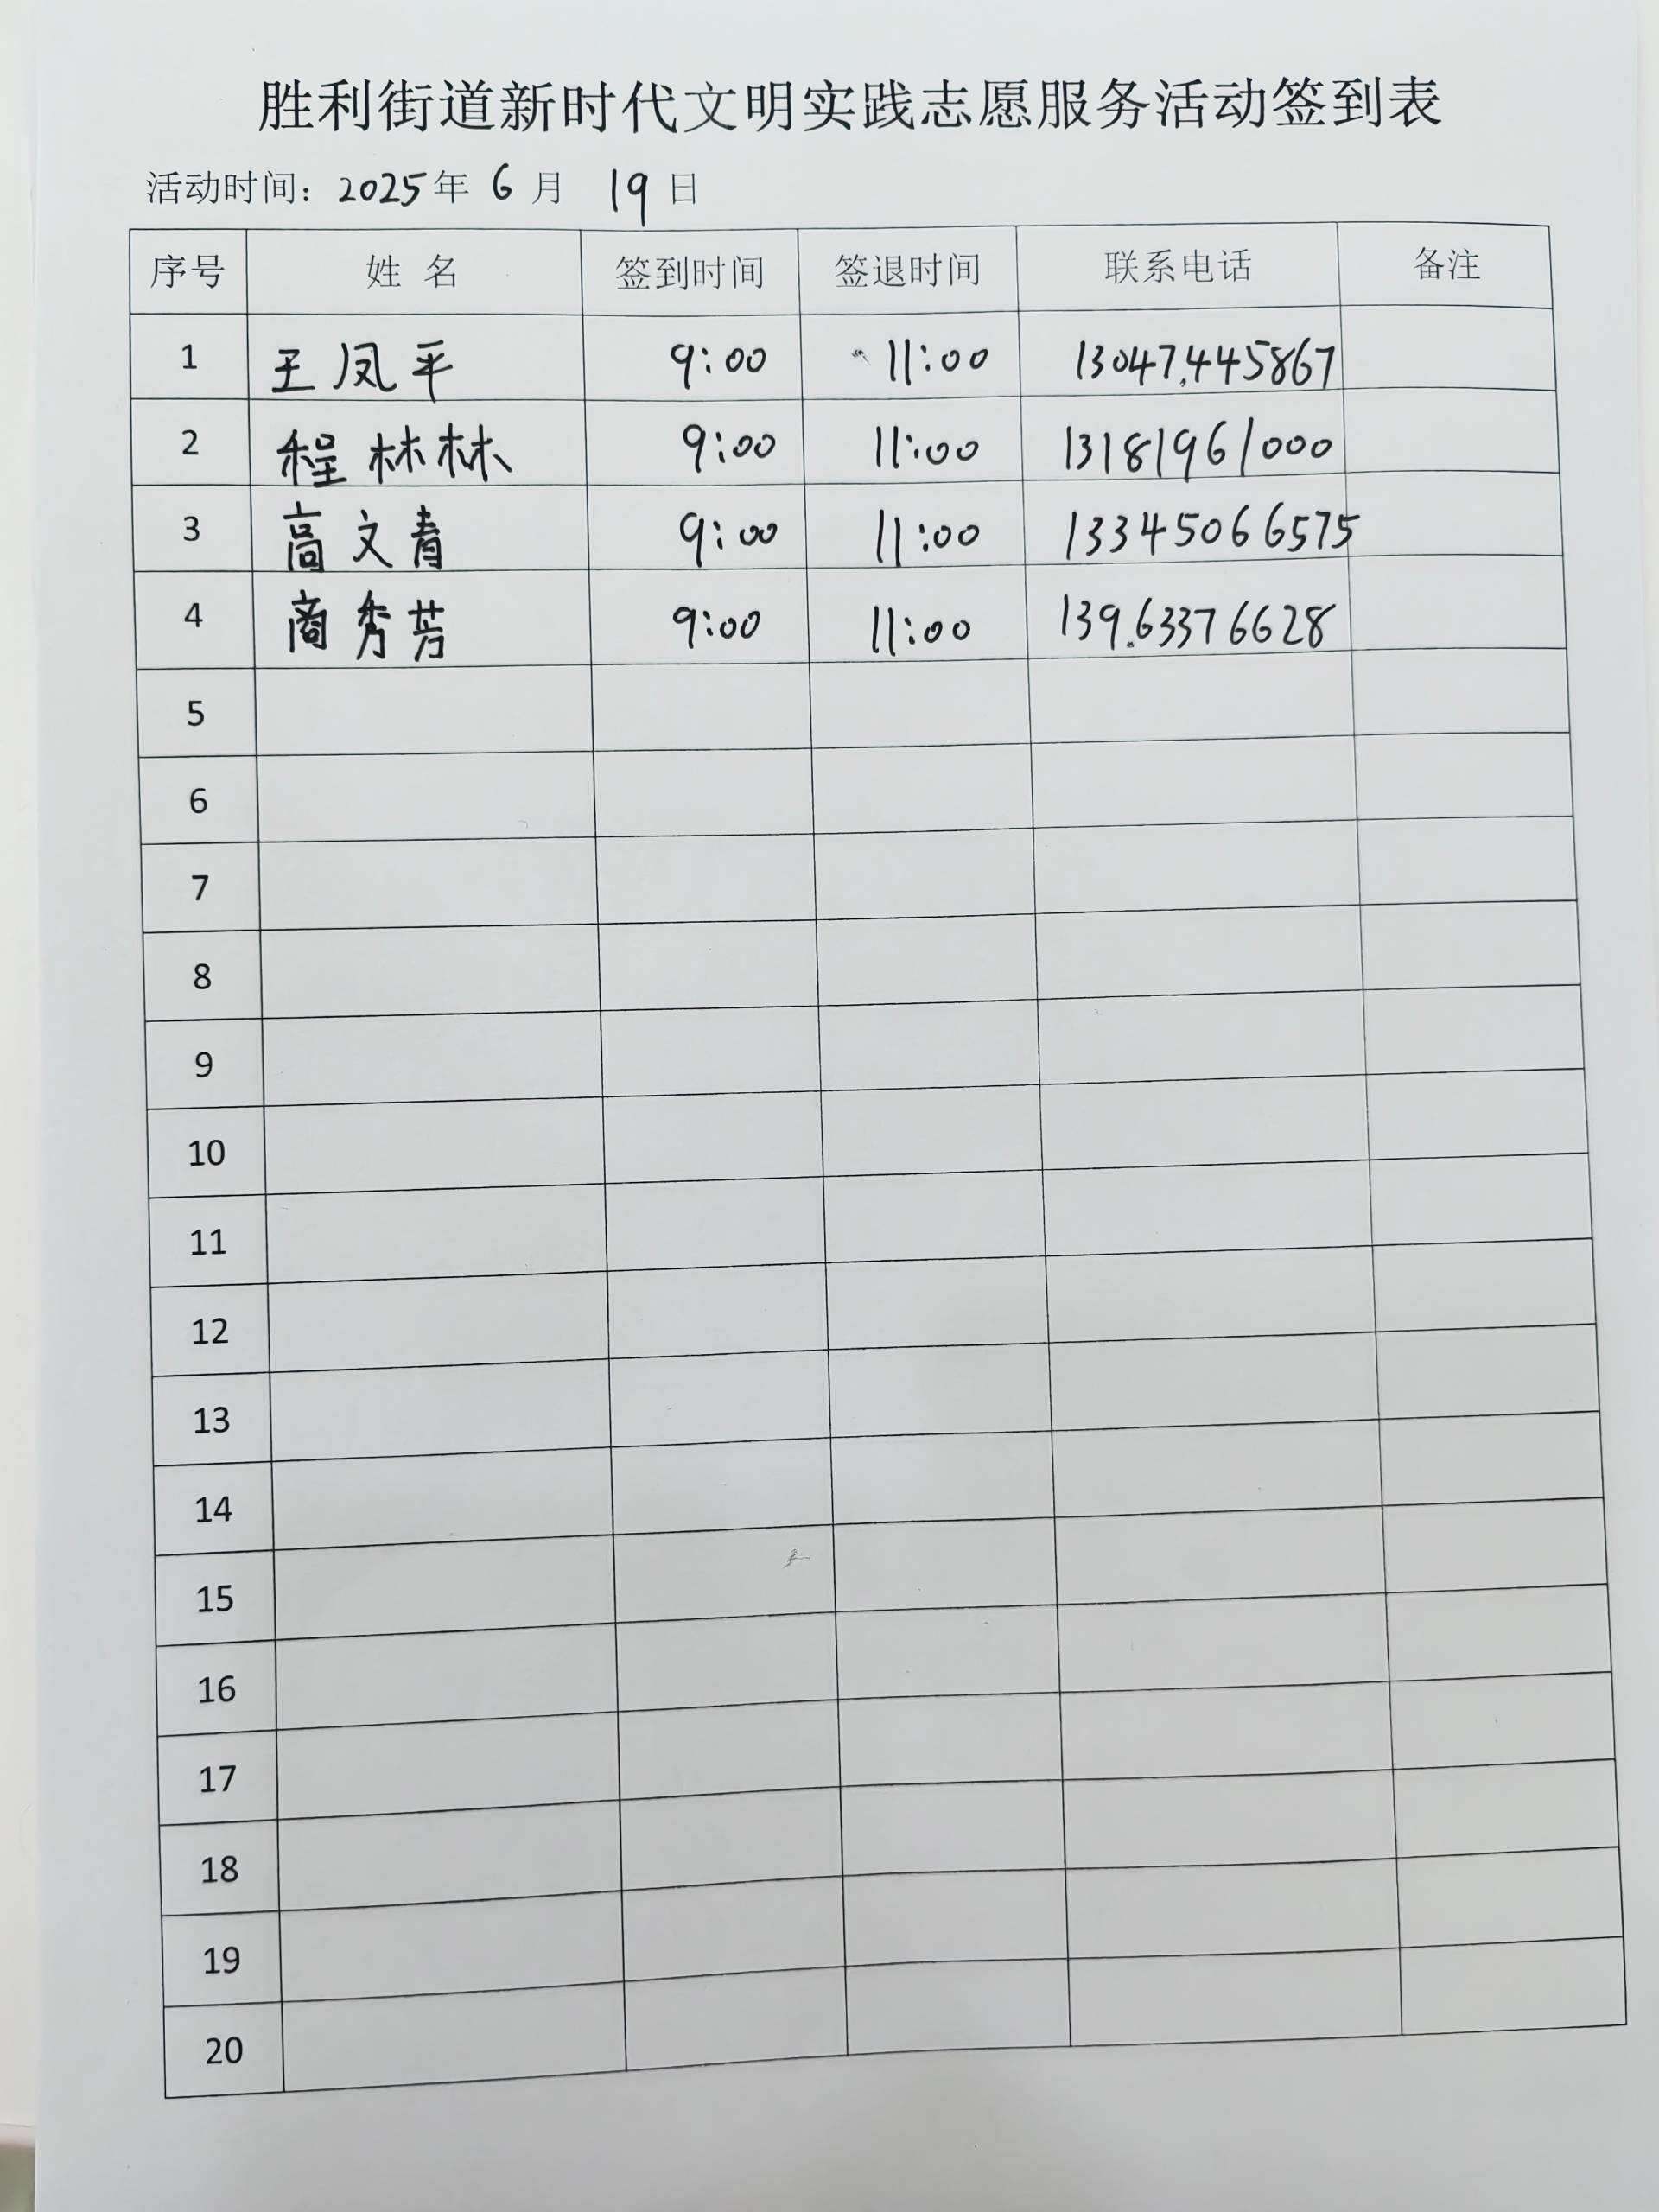 胜利街道新时代文明实践志愿服务活动签到表
活动时间：2025年 6 月 19 日
序号 姓 名 签到时间 签退时间 联系电话 备注
1 王凤平 9:00 11:00 13047445867
2 程林林 9:00 11:00 13181961000
3 高文青 9:00 11:00 13345066575
4 商秀芳 9:00 11:00 13963376628
5
6
7
8
9
10
11
12
13
14
15
16
17
18
19
20